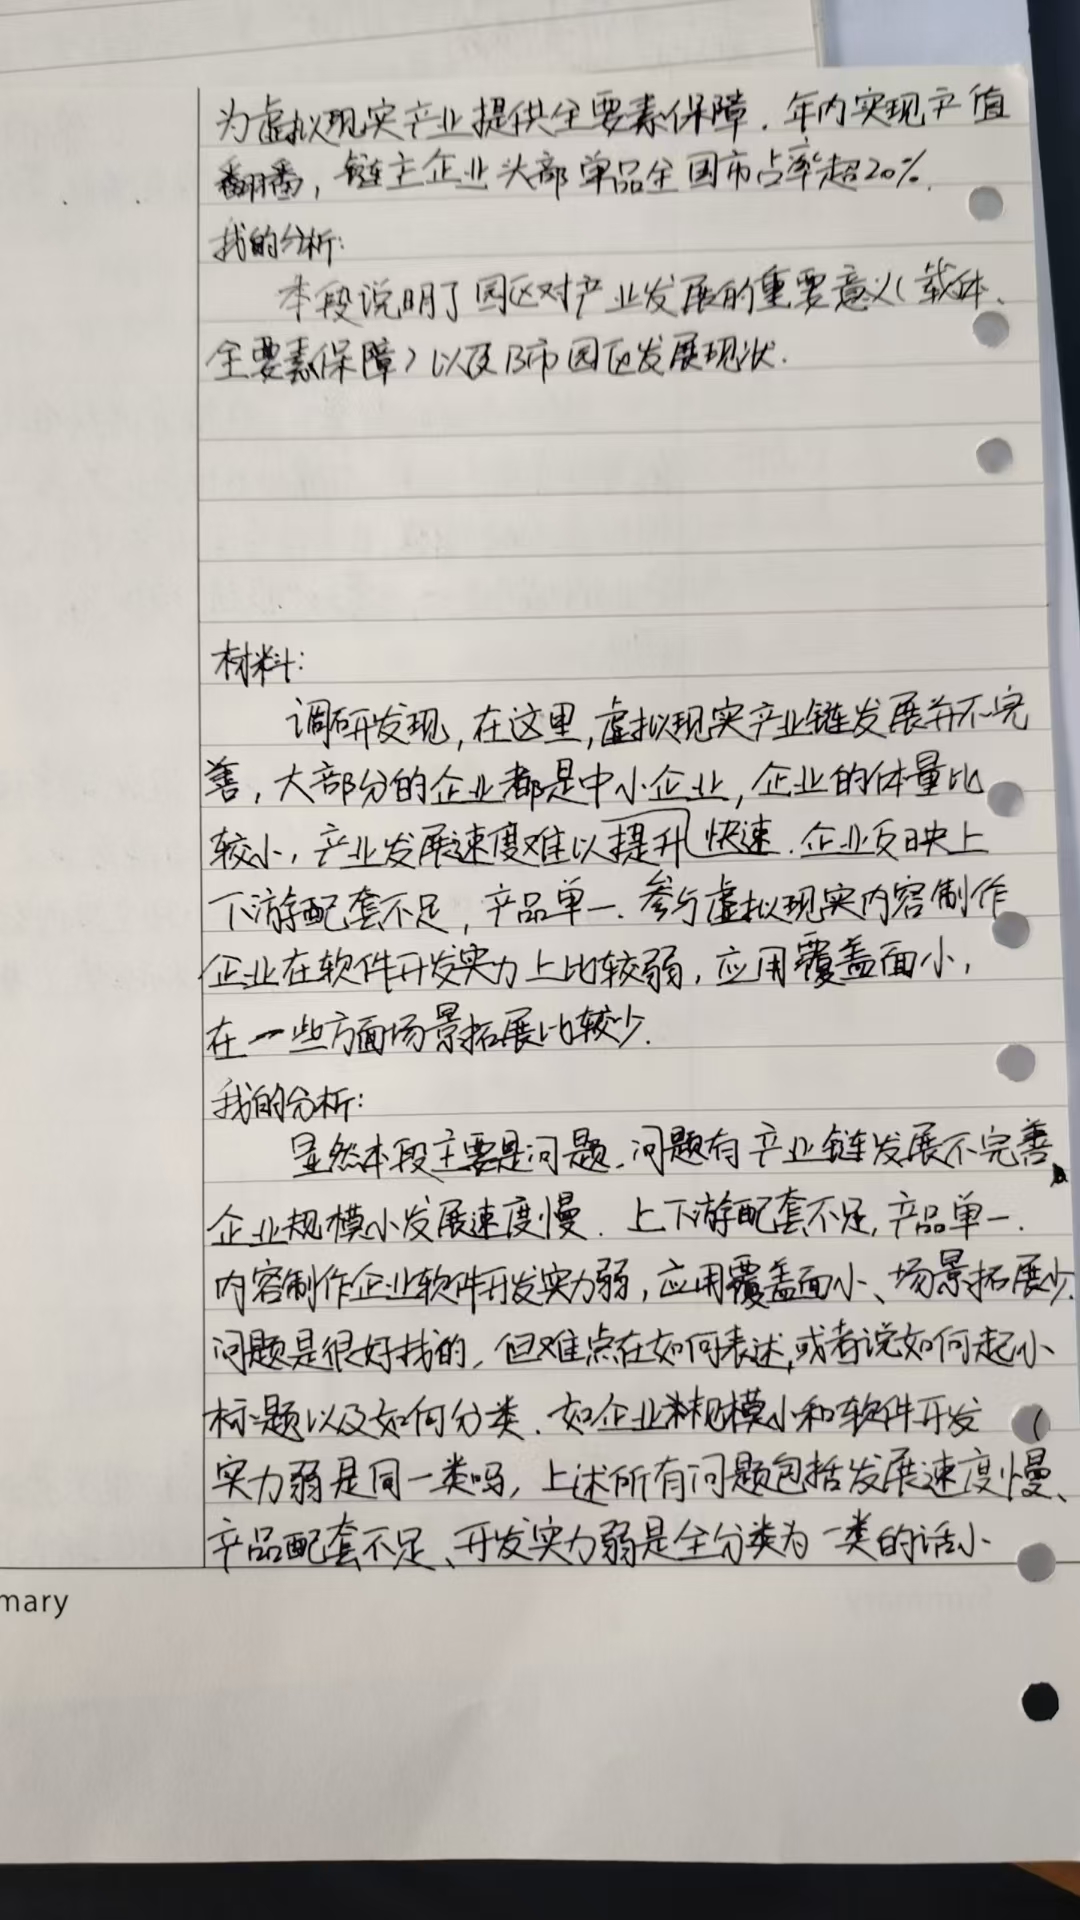 为虚拟现实产业提供全要素保障．年内实现产值
翻番，链主企业头部单品全国市占率超20%．
我的分析：
本段说明了园区对产业发展的重要意义（载体、
全要素保障）以及B市园区发展现状．
材料：
调研发现，在这里，虚拟现实产业链发展并不完
善，大部分的企业都是中小企业，企业的体量比
较小，产业发展速度难以提升快速．企业反映上
下游配套不足，产品单一．参与虚拟现实内容制作
企业在软件开发实力上比较弱，应用覆盖面小，
在一些方面场景拓展比较少．
我的分析：
显然本段主要是问题．问题有产业链发展不完善、
企业规模小发展速度慢．上下游配套不足，产品单一．
内容制作企业软件开发实力弱，应用覆盖面小、场景拓展少．
问题是很好找的，但难点在如何表述，或者说如何起小
标题以及如何分类．如企业规模小和软件开发
实力弱是同一类吗，上述所有问题包括发展速度慢、
产品配套不足、开发实力弱是全分类为一类的话小
mary